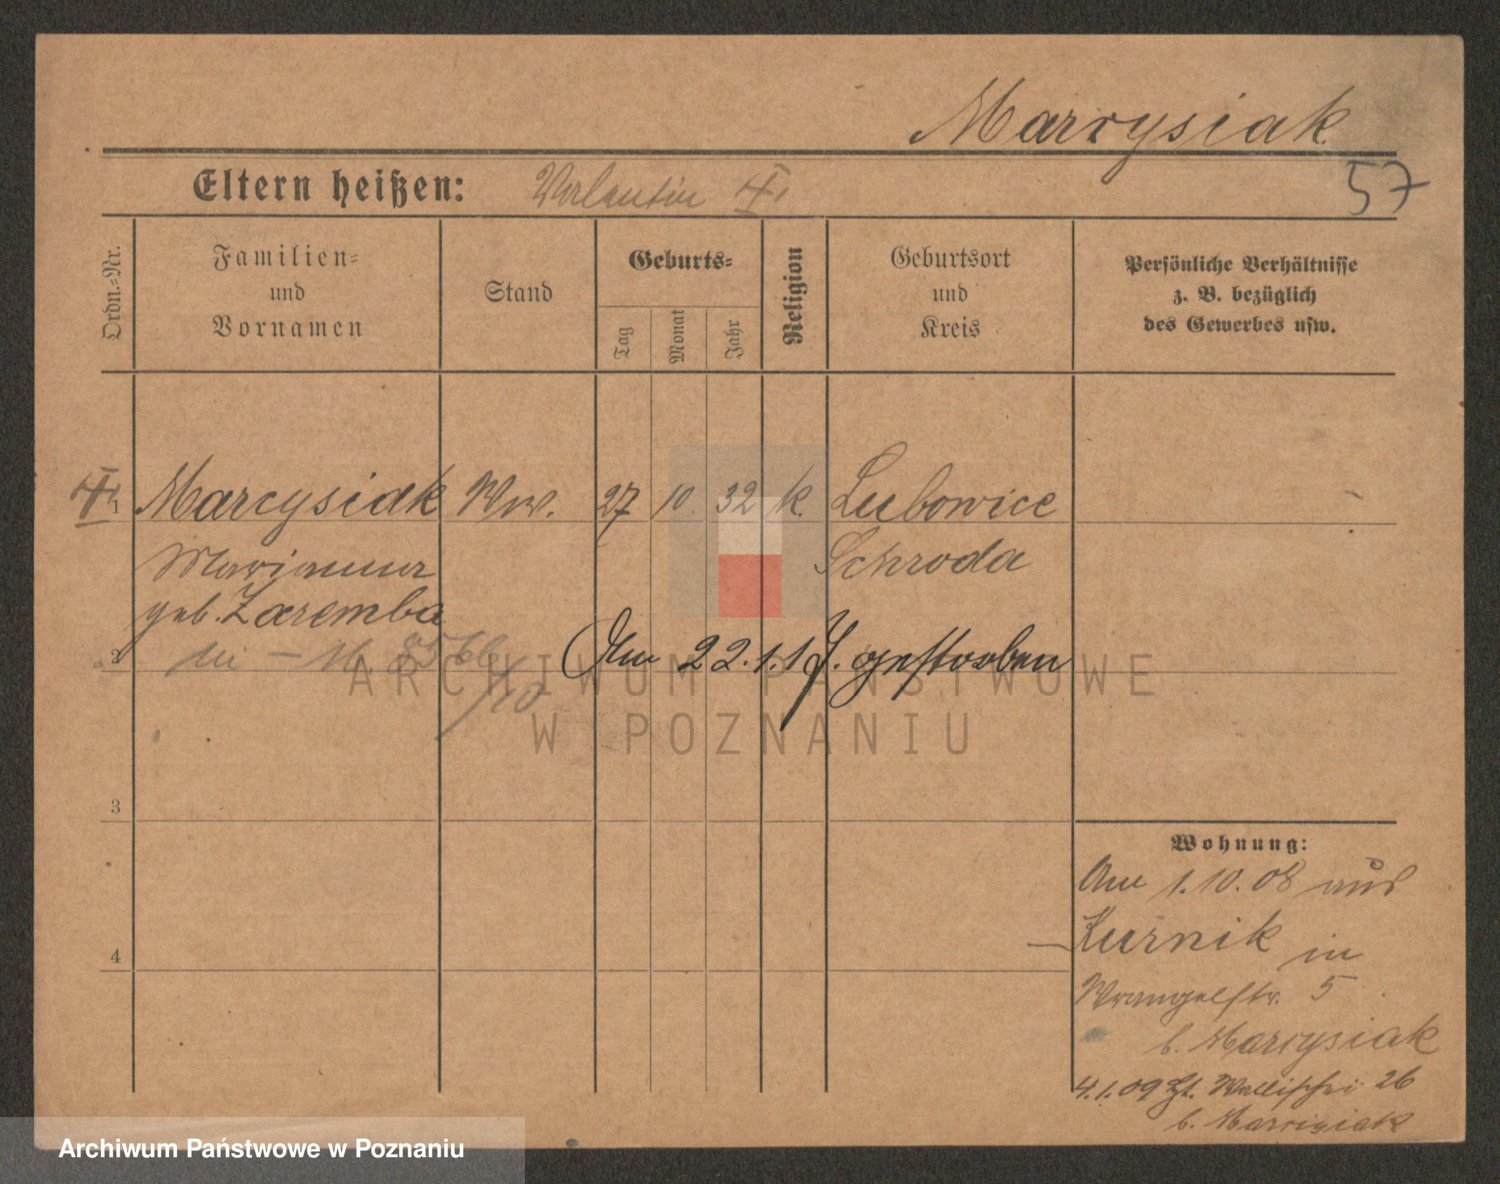 Marcysiak
57
Eltern heißen: Valentin
Ordn.-Nr.
Familien-
und
Vornamen
Stand
Geburts-
Tag
Monat
Jahr
Religion
Geburtsort
und
Kreis
Persönliche Verhältnisse
z. B. bezüglich
des Gewerbes usw.
1 Marcysiak Ww. 27 10 32 k. Lubowice
Marianna Schroda
geb. Zaremba
2 Am 22.1.17. gestorben
ARCHIWUM PAŃSTWOWE
W POZNANIU
3
4
Wohnung:
Am 1.10.08 aus
Kurnik in
Wrangelstr. 5
b. Marcysiak
4.1.09 Wallischei 26
b. Marcysiak
Archiwum Państwowe w Poznaniu